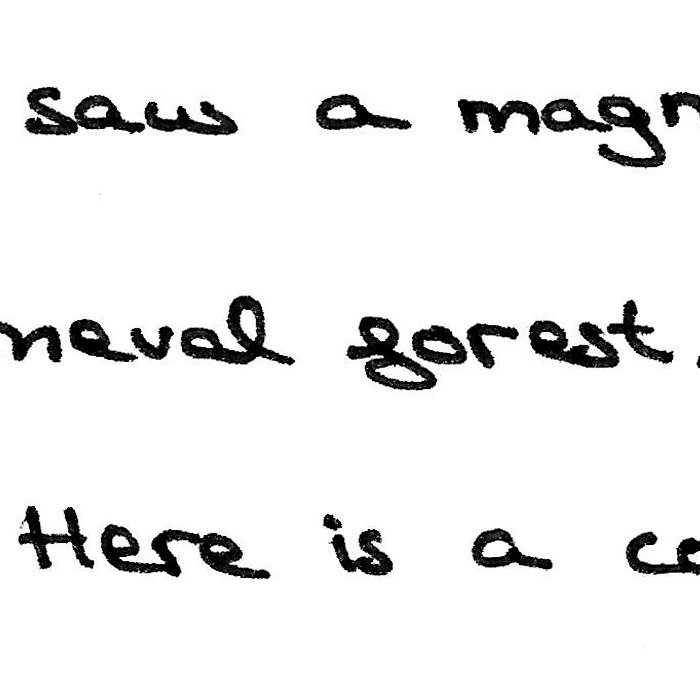 saw a magn
neval forest.
Here is a co